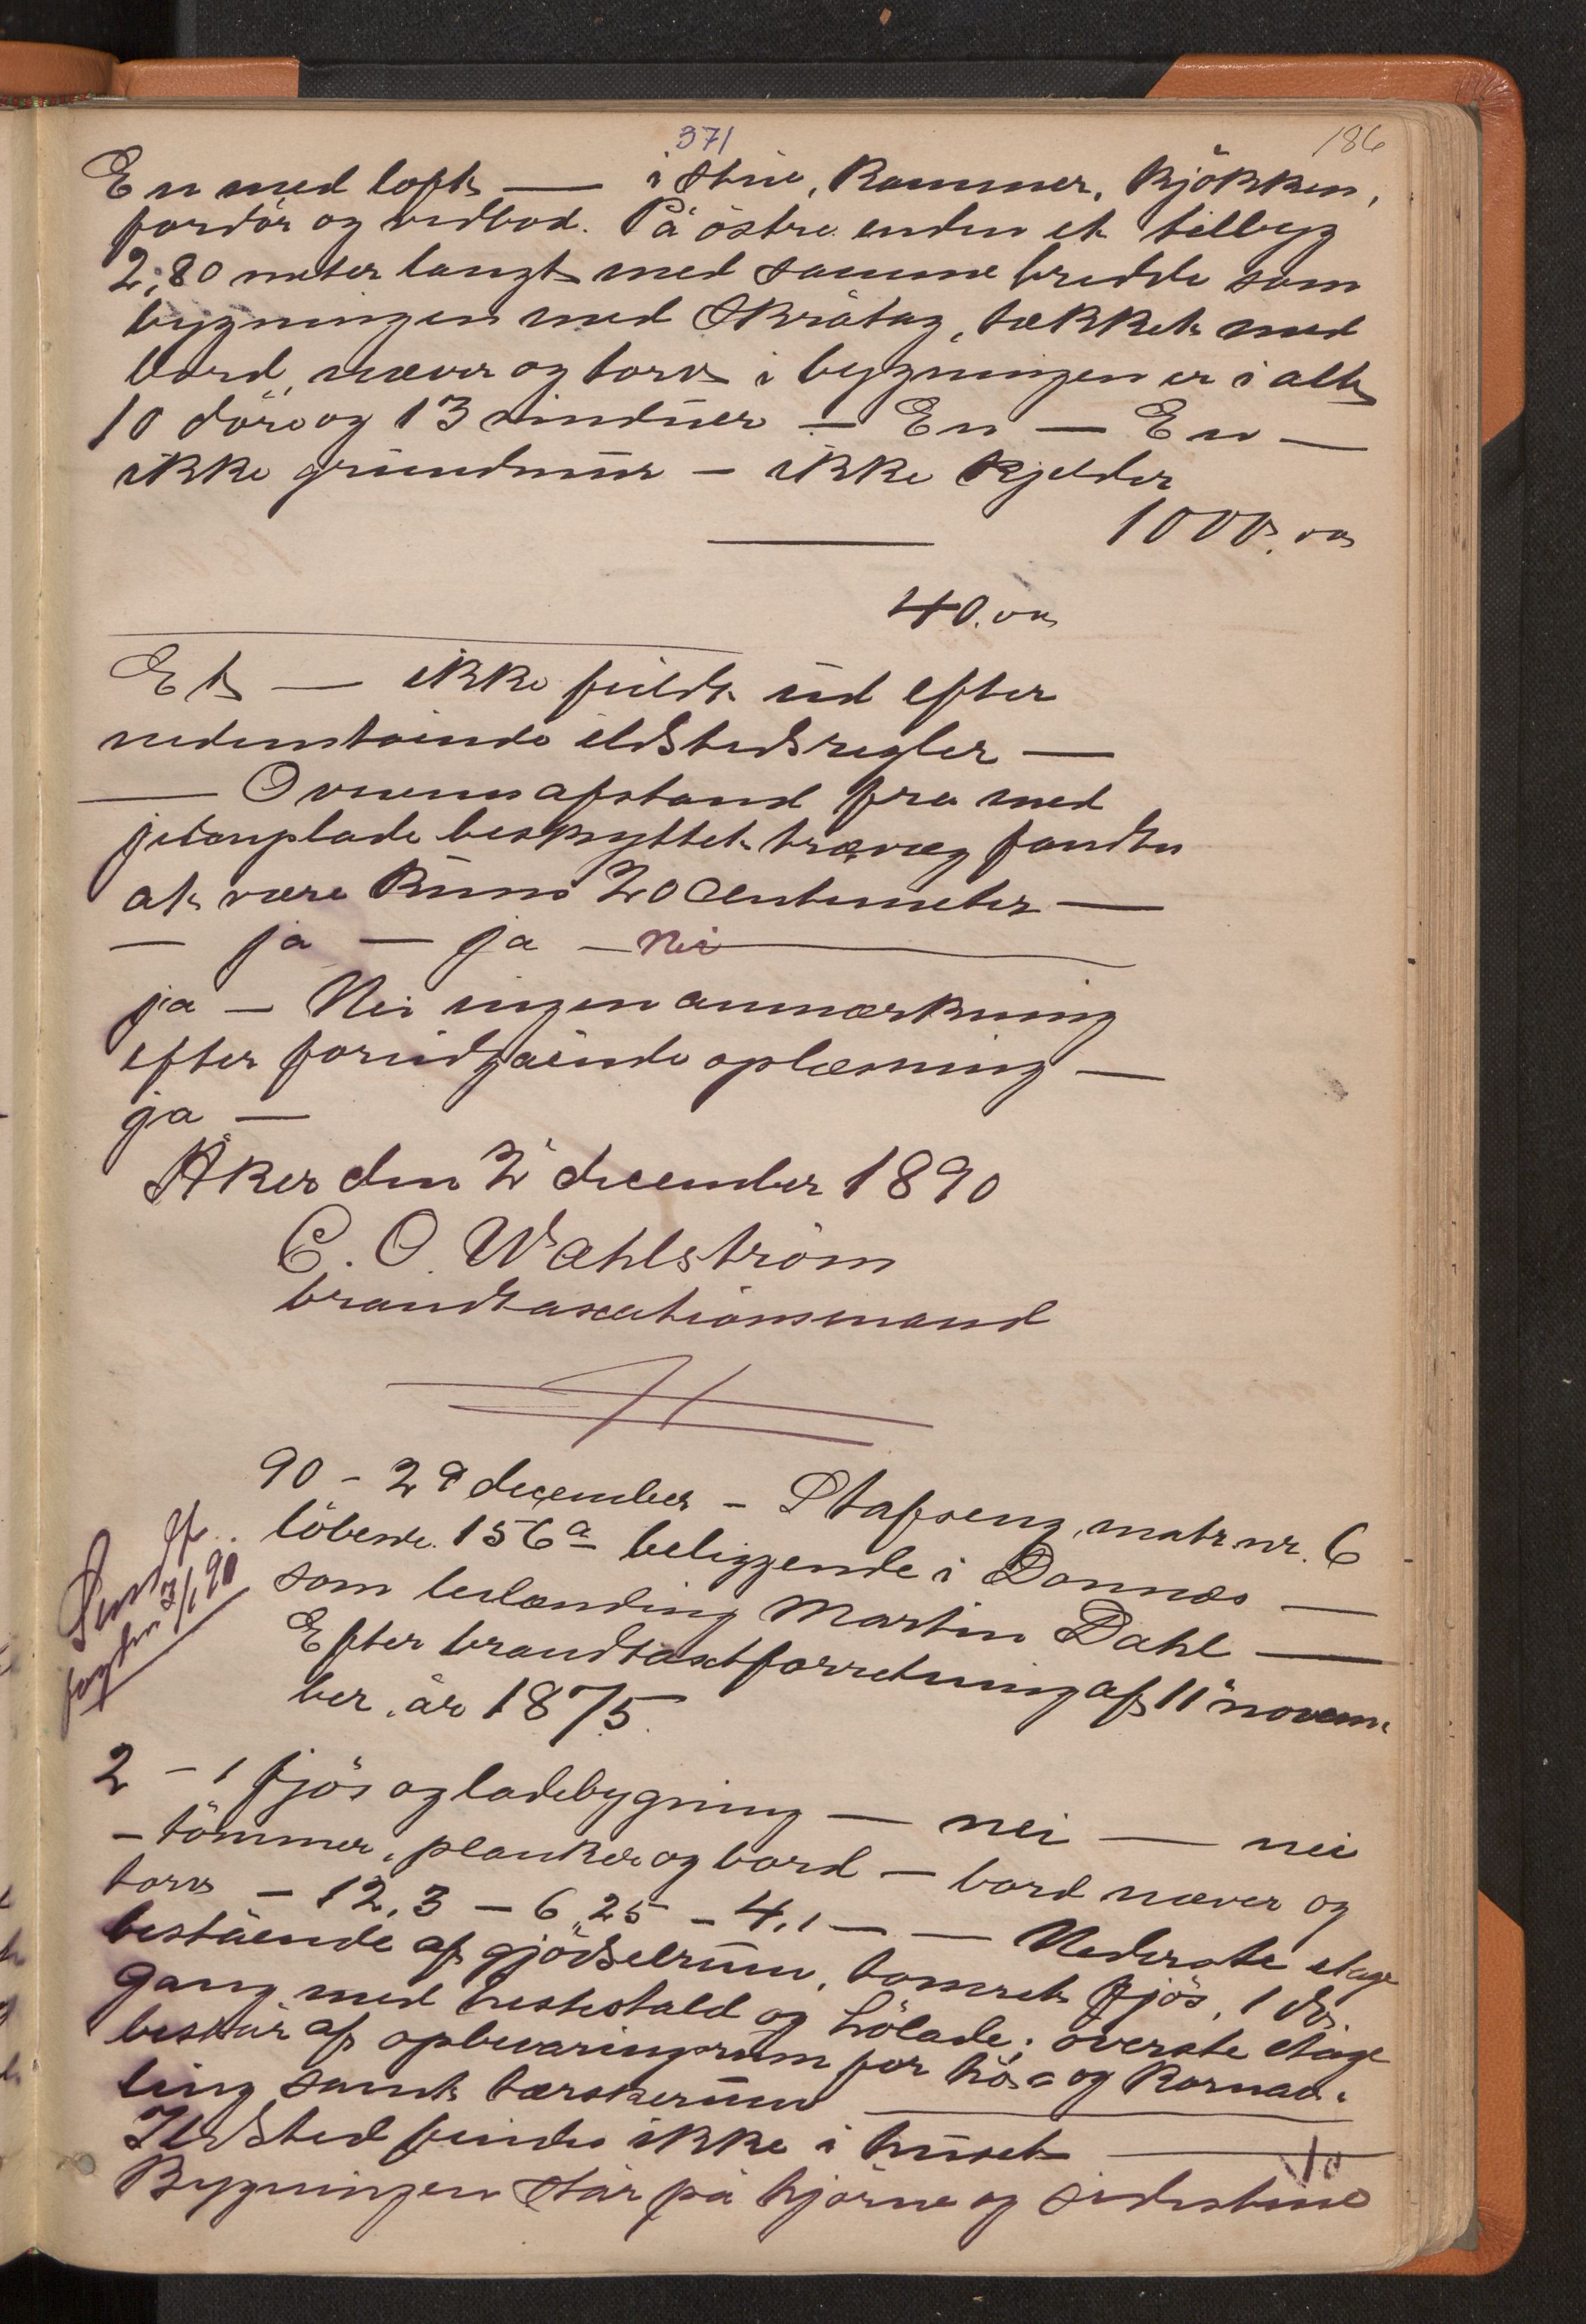 371
186
En med loft — 1 stue, kammer, kjökken,
fordör og vedbod. På östre enden et tilbyg
2,80 meter langt med samme bredde som
bygningen med skråtag, tækket med
bord, næver og torv i bygningen er i alt
10 döre og 13 vinduer — En — En —
ikke grundmur — ikke kjelder
1000.00
40.00
Et — ikke fuldt ud efter
nedenstående ildstedsregler —
— Ovnenes afstand fra med
jernplade beskyttet trævæg fandtes
at være kuns 20 Centimeter —
— ja — ja — Nei —
ja — Nei ingen anmærkning
efter forudgående oplæsning —
ja —
Åker den 2 december 1890
C. O. Wahlström
brandtaxationsmand
90 - 2 december - Stafseng, matr. nr. 6
löbende 156a beliggende i Dønnes —
som leilænding Martin Dahl —
Efter brandtaxtforretning af 11 novem-
ber år 1875.
Sendt
fogden 3/1 90
2 - 1 fjös og ladebygning — nei — nei
- tömmer, planker og bord — bord næver og
torv - 12,3 - 6,25 - 4,1 — — Nederste etage
bestående af gjödselrum, tomret fjös, 1
gang med hestestald og hölade; överste etage
består af opbevaringsrum for hö og kornav-
ling samt tærskerum —
Ildsted findes ikke i huset —
Bygningen står på hjörne og sidestene